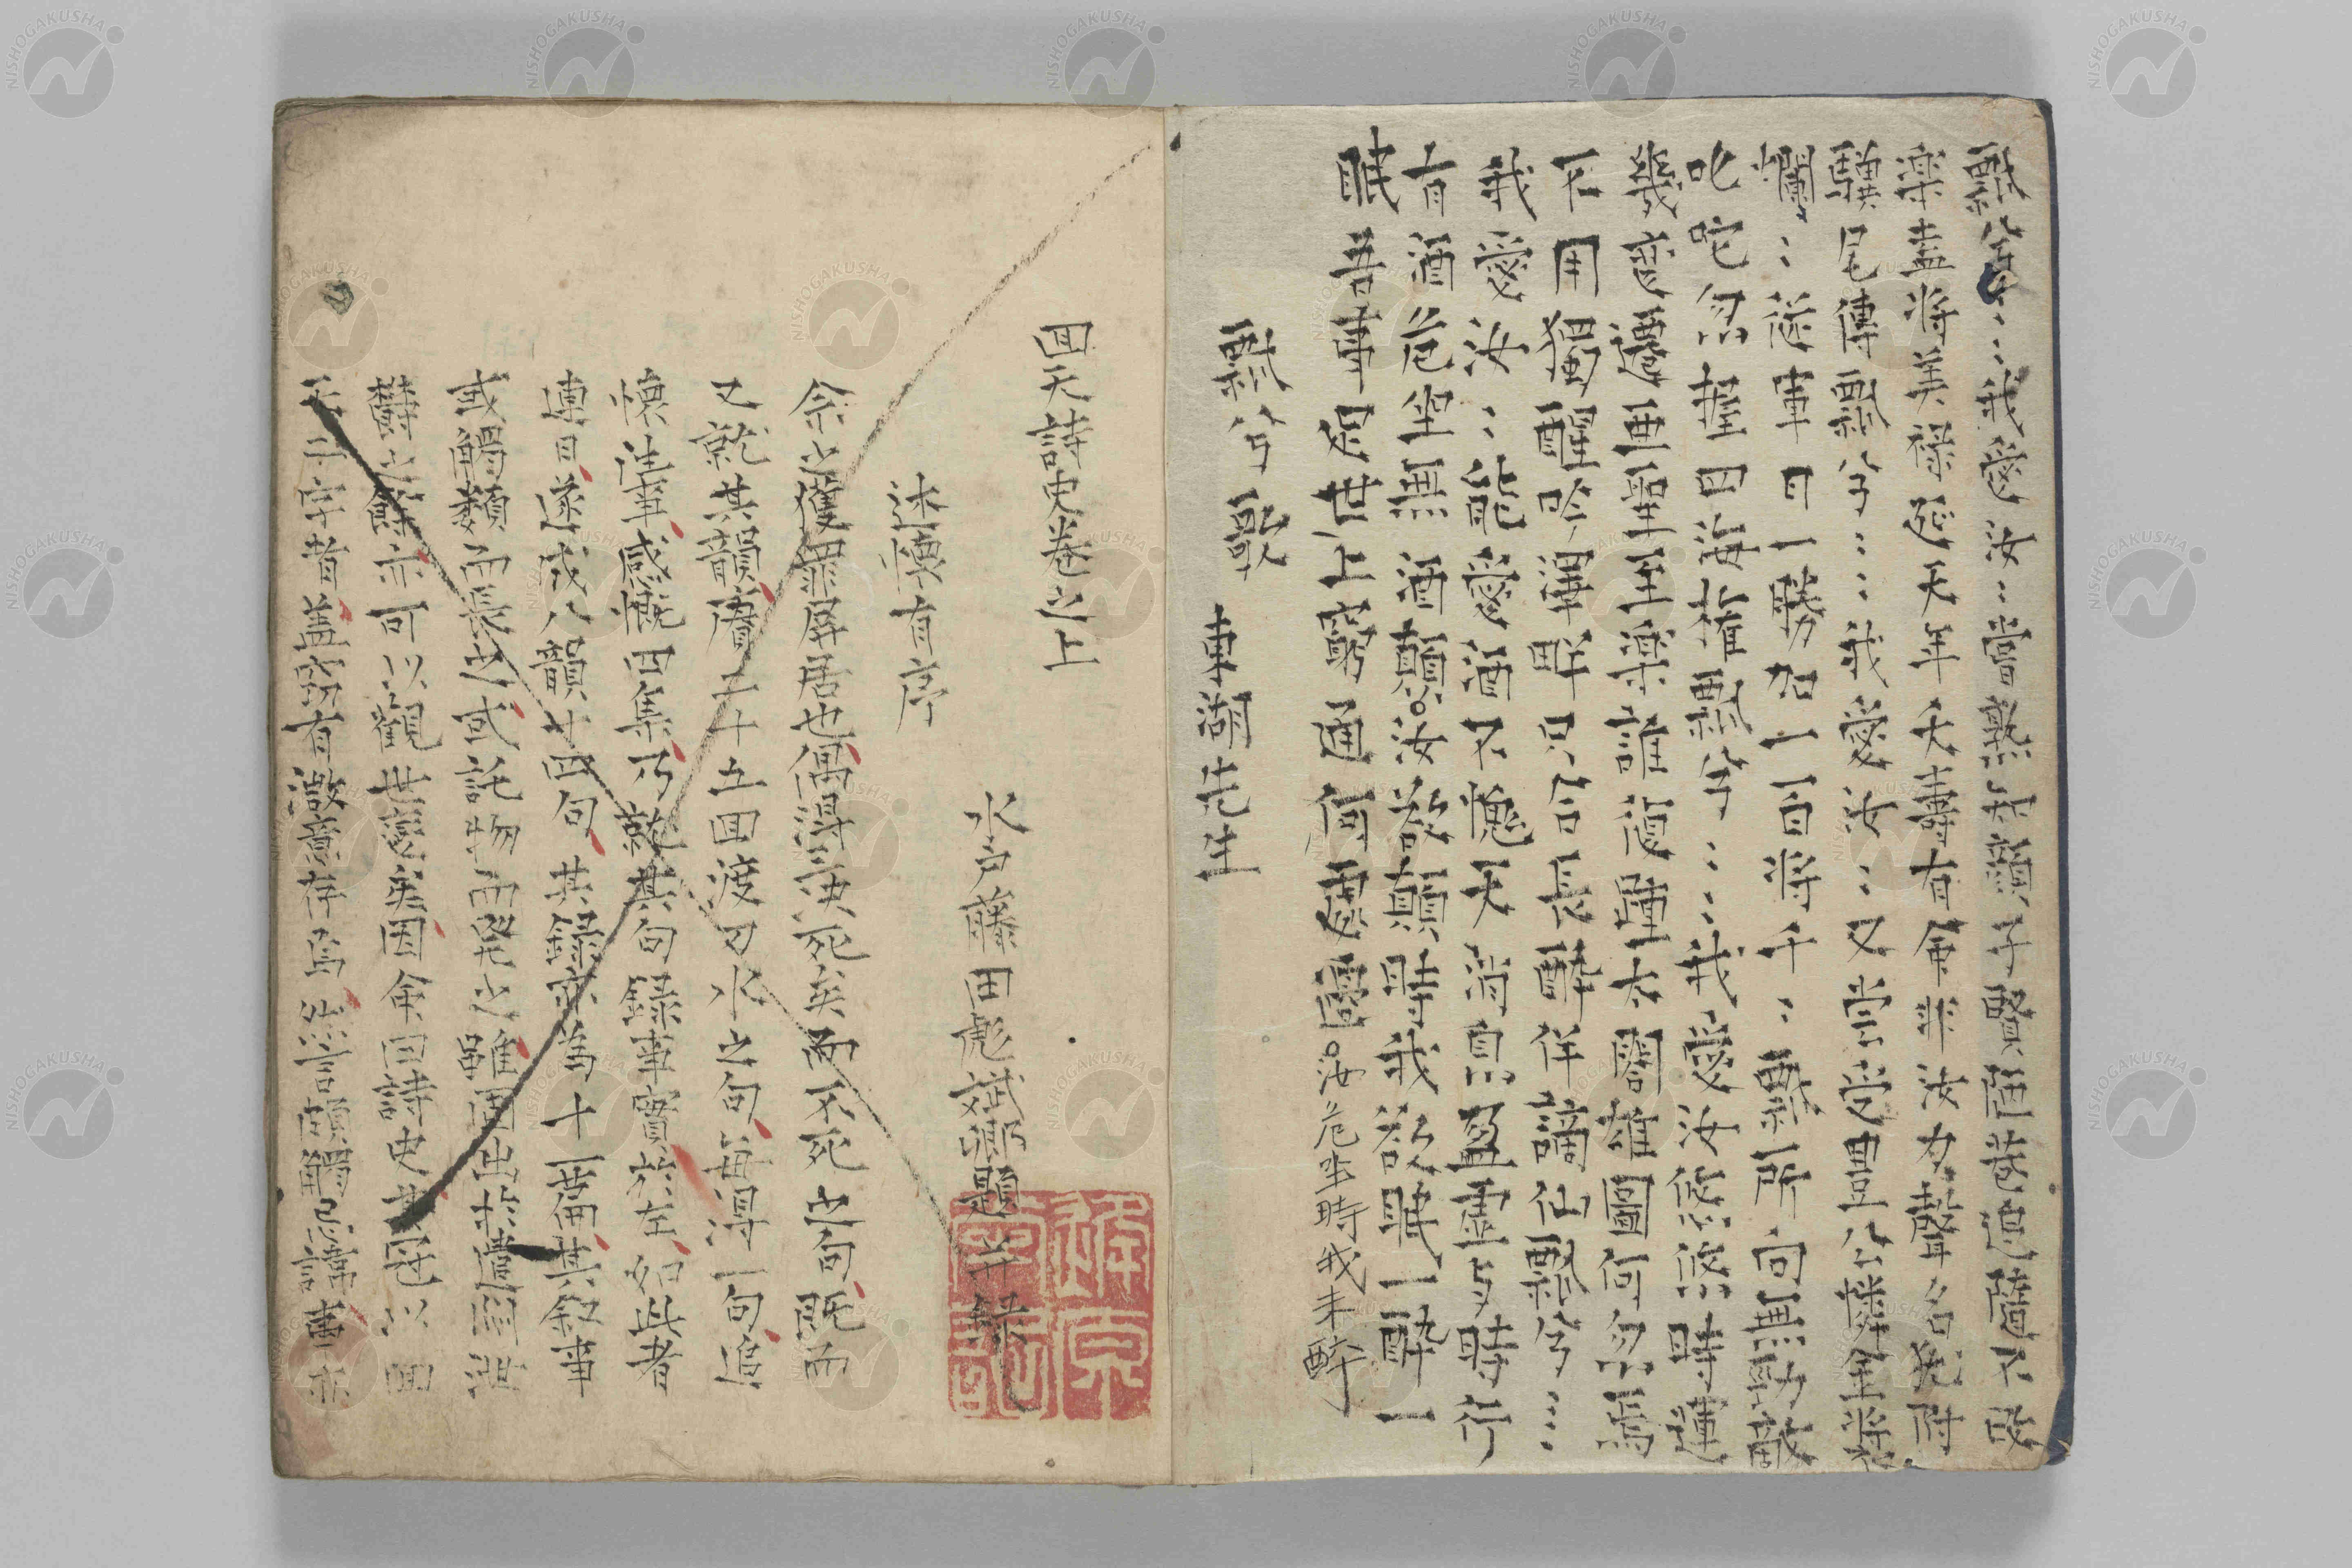 瓢兮〻〻我愛汝〻嘗熟知顔子賢陋巷追隨不改
楽盍将美禄延天年天壽有命非汝力聲名猶附
驥尾傳瓢兮〻〻我愛汝〻又嘗受豊公憐金装
燗〻従軍日一勝加一百将千〻瓢所向無勁敵
叱咤忽握四海権瓢兮〻〻我愛汝悠悠時運
幾変遷亜聖至楽誰復踵太閤雄圖何忽焉
不用獨醒吟澤畔只合長酔伴謫仙瓢兮〻〻
我愛汝〻能愛酒不愧天消息盈虚与時行
有酒危坐無酒顛汝欲顛時我欲眠一酔一
眠吾事足世上窮通何處邊
汝危坐時我未酔
瓢兮歌
東湖先生
回天詩史巻之上
水戸藤田彪斌卿題并録
述懐有序
余之獲罪屏居也偶得決死矣而不死之句既而
又就其韻礎二十五回渡刀水之句毎得一句追
懐往事感慨四集乃就其句録事實於左如此者
連日遂成八韻十四句其録亦為十一箇其叙事
或觸類而長之或託物而發之雖固出於憤悶
鬱之餘亦可以觀世變矣因命曰詩史且冠以回
天二字者蓋亦有微意存焉